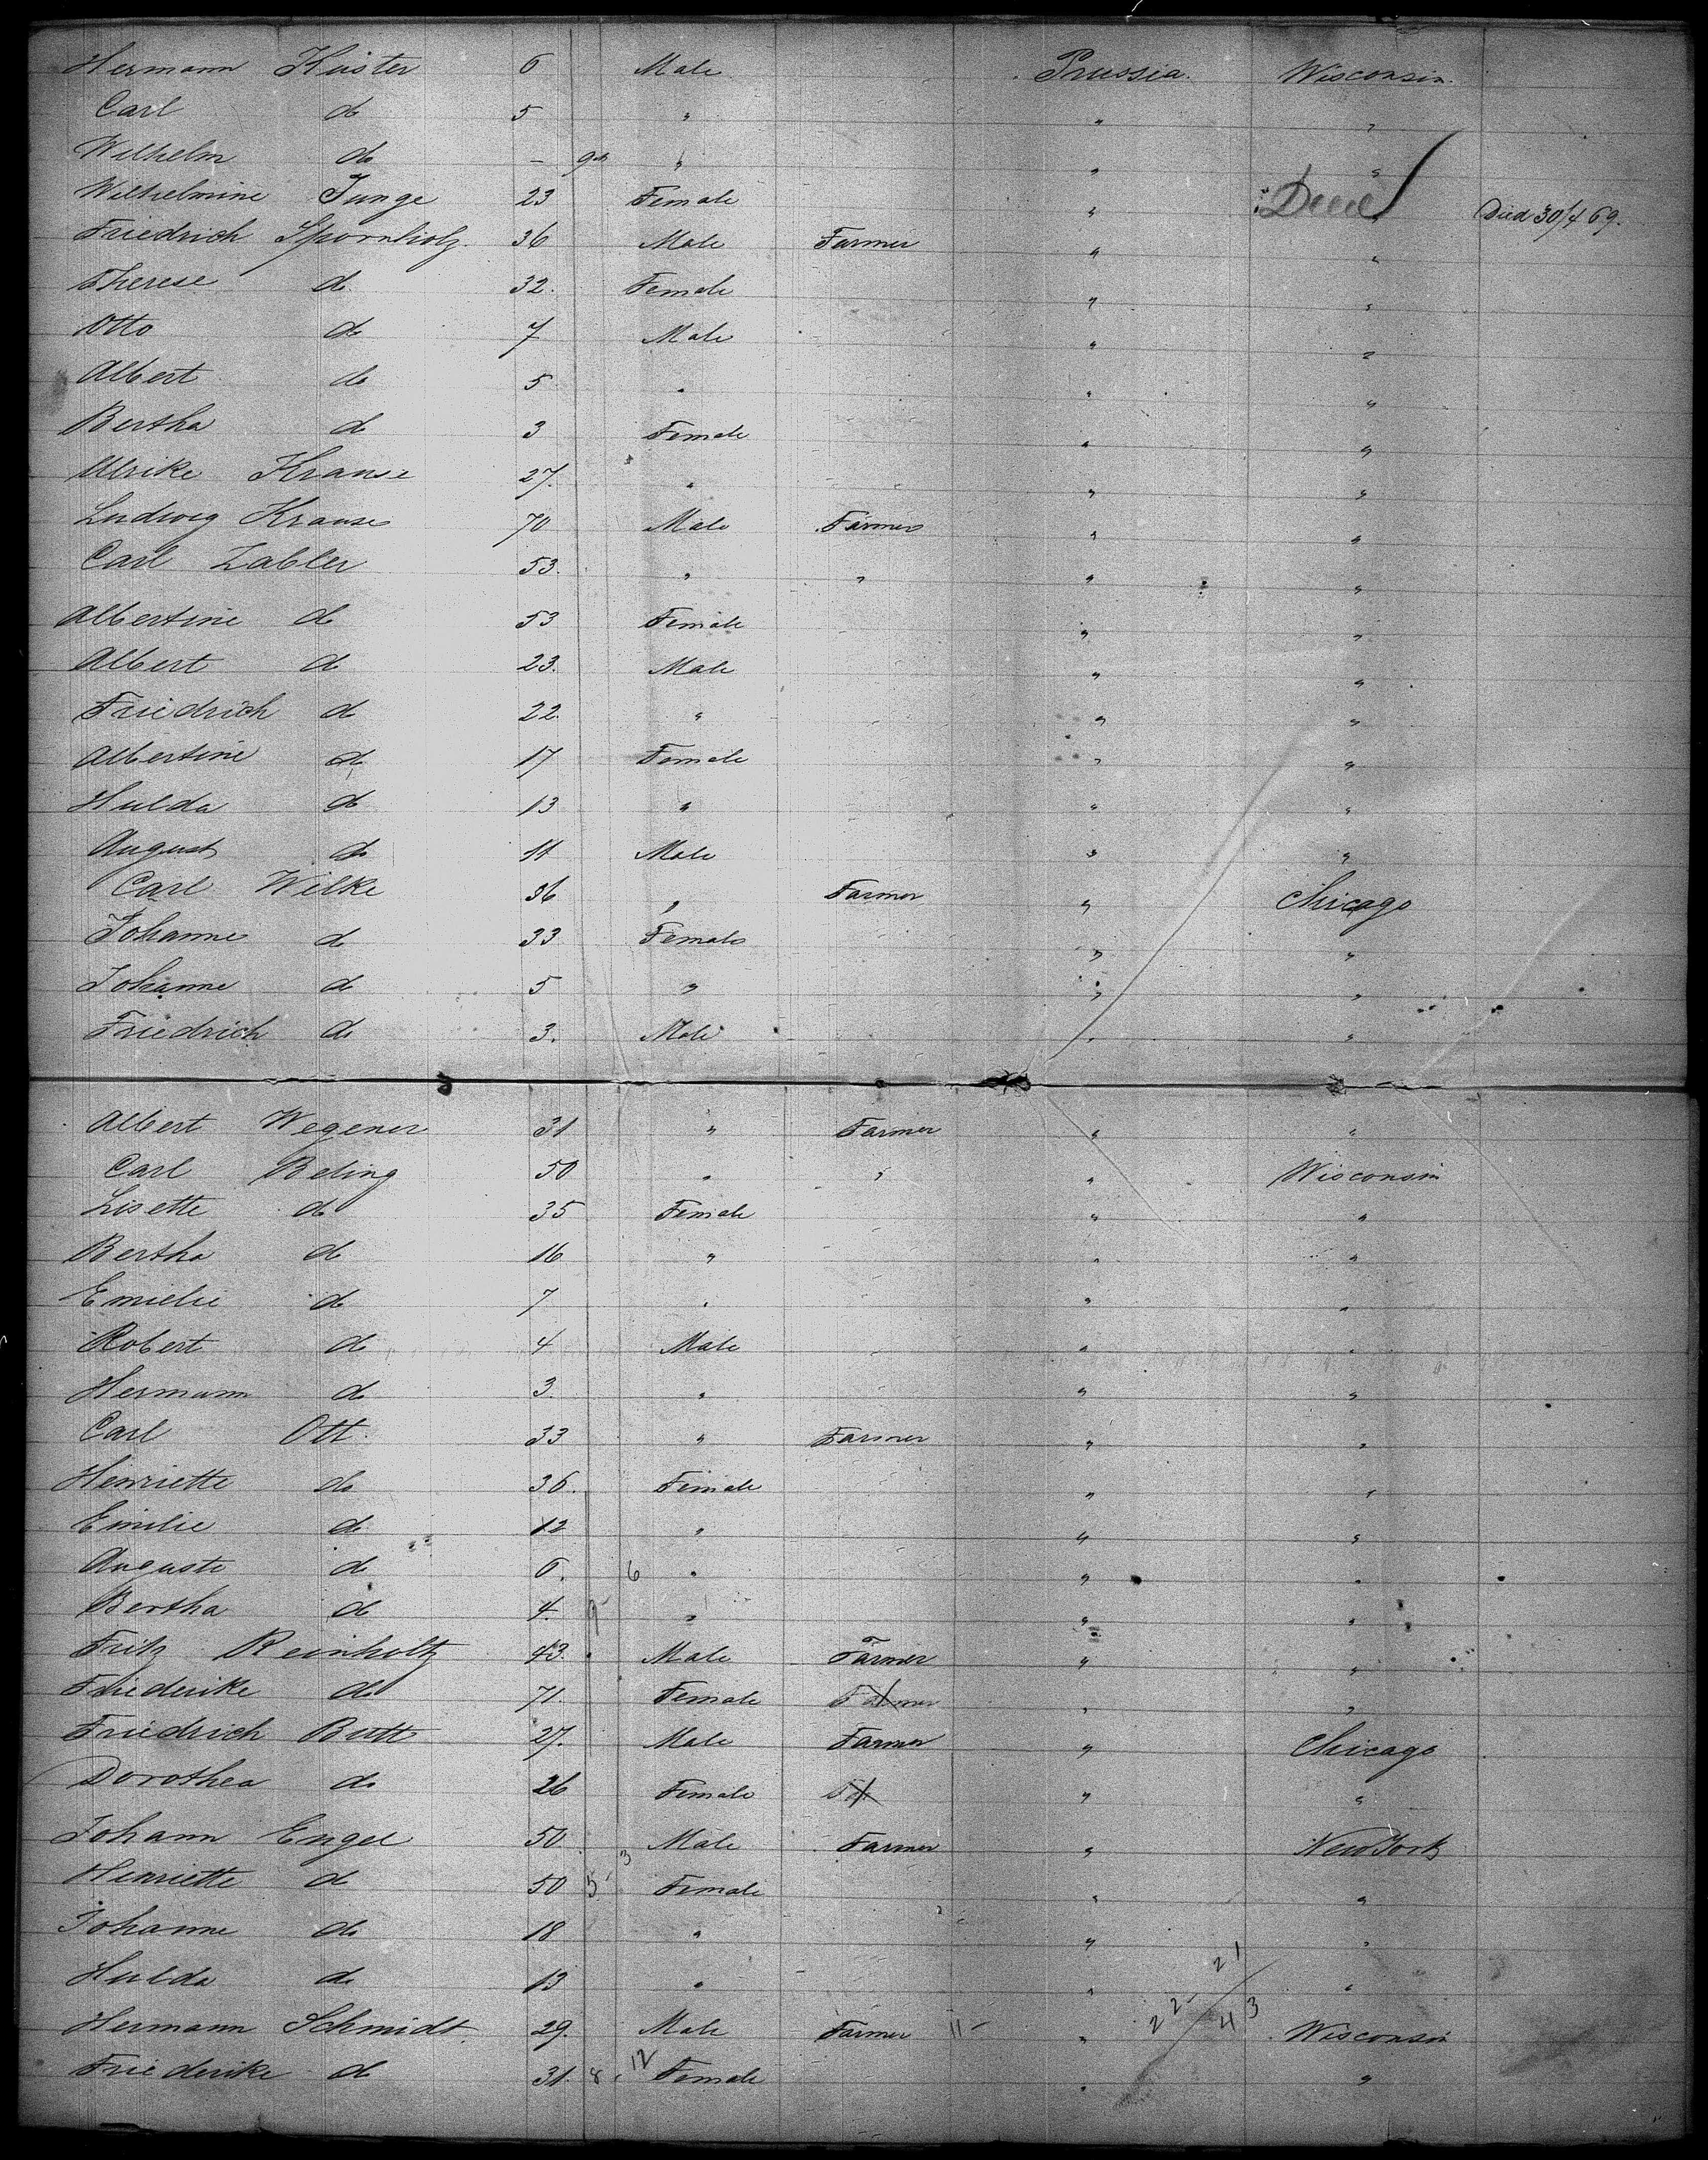 Hermann Küster 6 Male Prussia Wisconsin
Carl do 5 " " "
Wilhelm do - 9m " " "
Wilhelmine Junge 23 Female " Died Died 30/4 69.
Friedrich Spornholz 36 Male Farmer " "
Therese do 32. Female " "
Otto do 7 Male " "
Albert do 5 " " "
Bertha do 3 Female " "
Ulrike Krause 27. " " "
Ludwig Krause 70 Male Farmer " "
Carl Zabler 53. " " " "
Albertine do 53 Female " "
Albert do 23. Male " "
Friedrich do 22. " " "
Albertine do 17 Female " "
Hulda do 13 " " "
August do 11 Male " "
Carl Wilke 36 " Farmer " Chicago
Johanne do 33 Female " "
Johanne do 5 " " "
Friedrich do 3. Male " "
Albert Wegener 31 " Farmer " "
Carl Beling 50 " " " Wisconsin
Lisette do 35 Female " "
Bertha do 16 " " "
Emilie do 7 " " "
Robert do 4 Male " "
Hermann do 3. " " "
Carl Ott. 33 " Farmer " "
Henriette do 36. Female " "
Emilie do 12 " " "
Auguste do 6. 6 " " "
Bertha do 4. " " "
Fritz Reinholtz 43. Male Farmer " "
Friederike do 71. Female Farmer " "
Friedrich Butt 27. Male Farmer " Chicago
Dorothea do 26 Female " "
Johann Engel 50 3 Male Farmer " New York
Henriette do 50 5 Female " "
Johanne do 18 " " "
Hulda do 13 " " " 21
Hermann Schmidt. 29. Male Farmer 11 - " 22 43 Wisconsin
Friederike do 31. 8 - 12 Female " "